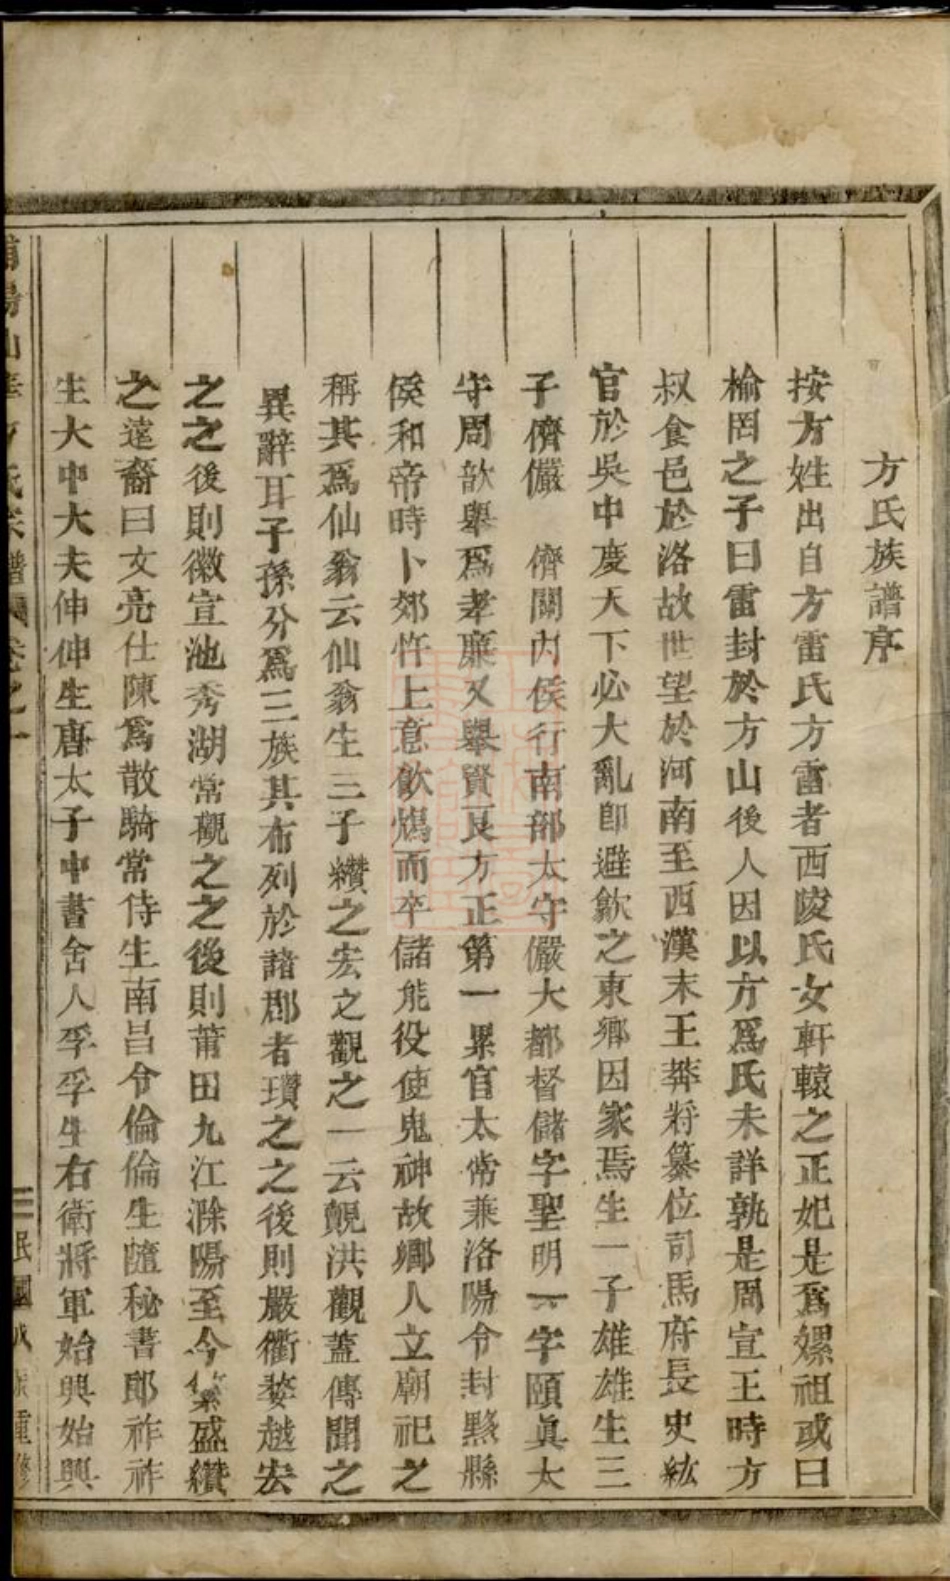 方氏族譜序
按方姓出自方雷氏方雷者西陵氏女軒轅之正妃是爲嫘祖或曰
榆罔之子曰雷封於方山後人因以方爲氏未詳孰是周宣王時方
叔食邑於洛故世望於河南至西漢末王莽將纂位司馬府長史紘
官於吳中度天下必大亂卽避歙之東鄉因家焉生一子雄雄生三
子儕儼 儕關內侯行南部太守儼大都督儲字聖明一字頤眞太
守周歆舉爲孝廉又舉賢良方正第一累官太常兼洛陽令封黟縣
侯和帝時卜郊忤上意飲鴆而卒儲能役使鬼神故鄉人立廟祀之
稱其爲仙翁云仙翁生三子纘之宏之觀之一云覬洪觀蓋傳聞之
異辭耳子孫分爲三族其布列於諸郡者瓚之之後則嚴衢婺越宏
之之後則徽宣池秀湖常觀之之後則莆田九江滁陽至今繁盛纘
之遠裔曰文亮仕陳爲散騎常侍生南昌令倫倫生隨秘書郎祚祚
生大中大夫伸伸生唐太子中書舍人孚孚生右衛將軍始興始興
氏宗譜 卷之一 民國 重修